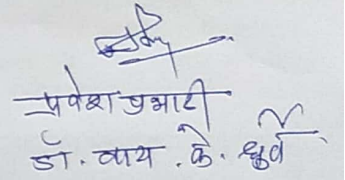 प्रवेश प्रभारी
डॉ. वाय. के. धुर्वे